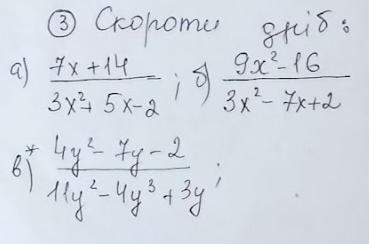 ③ Скороти дріб:
а) (7x+14)/(3x²+5x-2); б) (9x²-16)/(3x²-7x+2)
в)* (4y²-7y-2)/(11y²-4y³+3y);